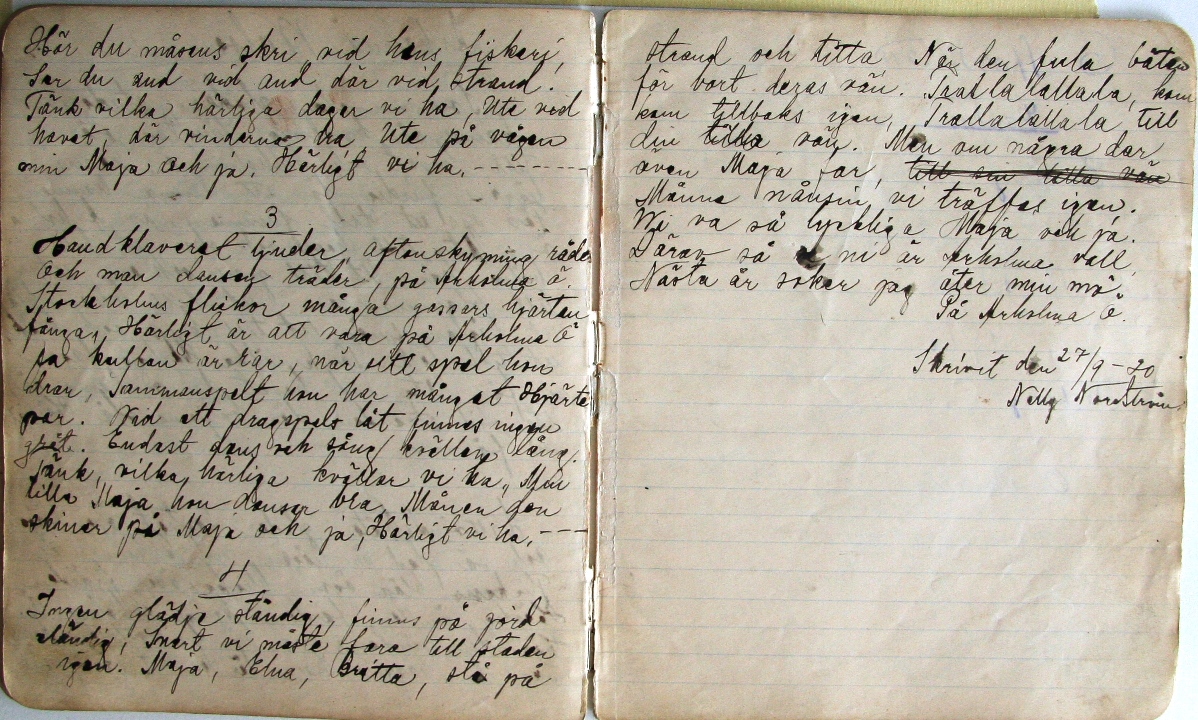 Hör du måsens skri vid hans fiskeri,
Ser du and vid and där vid strand.
Tänk vilka härliga dagar vi ha, Ute ved
havet, där vindarna dra, Ute på vågen
min Maja och ja. Härligt vi ha.
3
Handklaveret ljuder, aftonskymning råder
Och man dansen träder, på Arholma ö.
Stockholms flickor många gossars hjärten
fånga, Härligt är att vara på Arholma Ö
sa kullan är kär, när sitt spel hon
drar, Sammanspelt hon har månget Hjärte
par. Ved ett dragspels låt finnes ingen
gråt. Endast dans och sång kvällen lång.
Tänk, vilka härliga kvällar vi ha, Min
lilla Maja hon dansar bra. Månen den
skiner på Maja och ja, Härligt vi ha.
4
Ingen glädje ständig, finnes på jord
eländig, Snart vi måste fara till staden
igen. Maja, Elna, Britta, stå på
strand och titta När den fula båten
för bort deras vän. Trallalallala, kom
kom tillbaks igen, Trallalallala, till
din lilla vän. Men om några dar
även Maja far, till sin lilla vän
Månne nånsin, vi träffas igen.
Wi va så lyckliga Maja och ja.
Däran så ni är Arholma vall,
Nästa år söker jag åter min mö
På Arholma Ö.
Skrivit den 27/9-20
Nelly Nordström